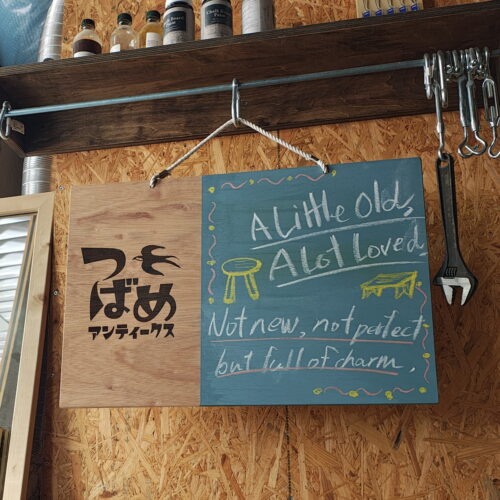 つばめ
アンティークス
A Little Old,
A Lot Loved,
Not new, not perfect
but full of charm.